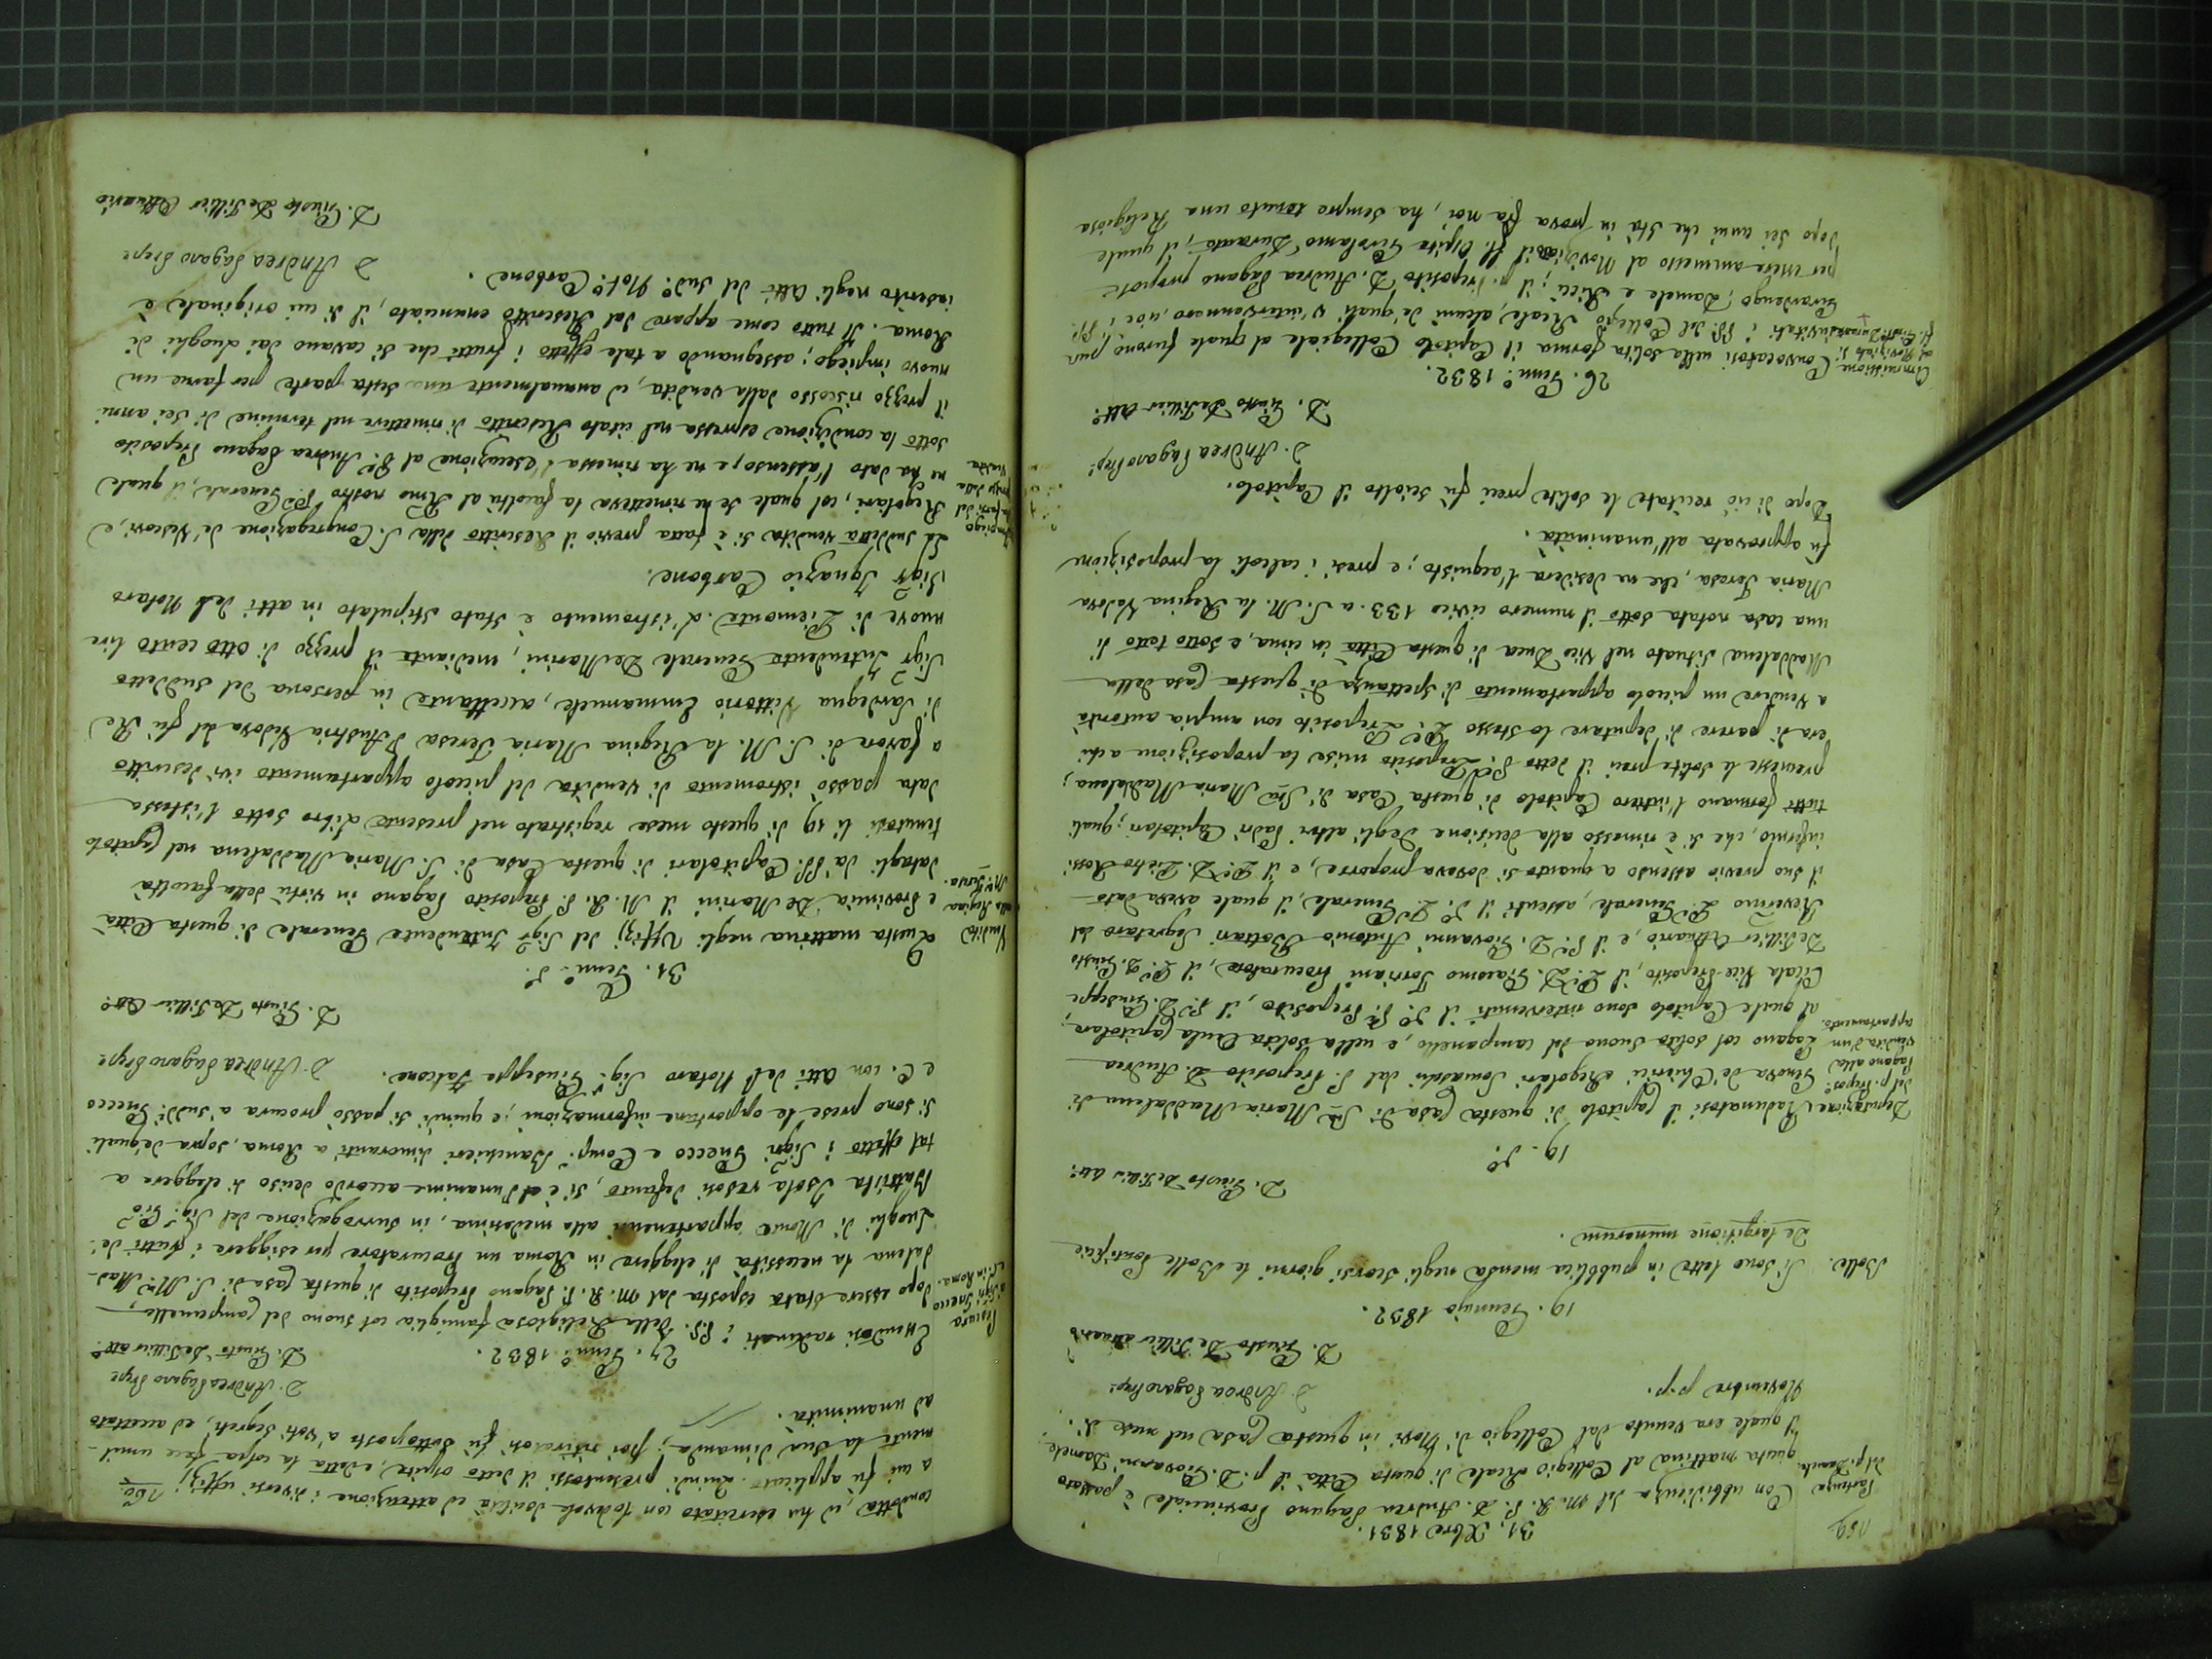 159
31. Xbre 1831.
Partenza del p. Damele.
Con ubbidienza del M. R. P. D. Andrea Pagano Provinciale è passato
questa mattina al Collegio Reale di questa Città il p. D. Giovanni Damele
il quale era venuto dal Collegio di Novi in questa Casa nel mese di
Novembre p.p.
D. Andrea Pagano Prep.
D. Giusto De Tillier attuario
19. Gennajo 1832.
Bolle.
Si sono lette in pubblica mensa negli scorsi giorni le Bolle Pontificie
De largitione munerum.
D. Giusto De Tillier att.
19. do.
Deputazione del p. Prepos. Pagano alla vendita d'un appartamento.
Radunatosi il Capitolo di questa Casa di Sta Maria Maddalena di
Genova de' Chierici Regolari Somaschi dal P. Preposito D. Andrea
Pagano col solito suono del campanello e, nella solita Aula Capitolare,
al quale Capitolo sono intervenuti il do. P. Preposito, il P. D. Giuseppe
Cicala Vice-Preposito, il P. D. Giacomo Torriani Procuratore, il P. D. Giusto
DeTillier Attuario, e il P. D. Giovanni Antonio Bottari Segretaro del
Revermo P. Generale, assente il do. P. Generale, il quale aveva dato
il suo previo assenso a quanto si doveva proporre, e il P. D. Pietro Rossi
infermo, che si è rimesso alla decisione degli altri Padri Capitolari; quali
tutti formano l'intero Capitolo di questa Casa di Sta Maria Maddalena;
premesse le solite preci il detto P. Preposito mise la proposizione a chi
era di parere di deputare lo stesso P. Preposito con ampia autorità
a vendere un piccolo appartamento di spettanza di questa Casa della
Maddalena situato nel Vico Duca di questa Città in cima, e sotto tetto di
una casa notata sotto il numero civico 133. a S. M. la Regina Vedova
Maria Teresa, che ne desidera l'acquisto; e presi i calcoli la proposizione
fu approvata all'unanimità.
Dopo di ciò recitate le solite preci fù sciolto il Capitolo.
D. Andrea Pagano Prep.
D. Giusto DeTillier Att.
26. Genn.o 1832.
Ammissione al Noviziato di fr. Girol. Durante
Convocatosi nella solita forma il Capitolo Collegiale al quale furono pur
invitati i PP. del Collegio Reale, alcuni de' quali v'intervennero, cioè i PP.
Gavardengo, Damele e Ricci; il p. Preposito D. Andrea Pagano propose
per essere ammesso al Noviziato il fr. Ospite Girolamo Durante, il quale
dopo sei anni che stà in prova fra noi, ha sempre tenuto una Religiosa
160
condotta, ed ha esercitato con lodevole docilità ed attenzione i diversi uffizj
a cui fu applicato. Quindi presentossi il detto ospite, e detta la colpa fece umil-
mente la sua dimanda; poi ritiratosi fù sottoposto a' voti segreti, ed accettato
ad unanimità.
D. Andrea Pagano Prepo
D. Giusto DeTillier att.o
27. Genn.o 1832.
Procura ai Sigri Gnecco e C. in Roma.
Essendosi radunati i PP. della Religiosa famiglia col suono del campanello,
dopo essere stata esposta dal M. R. P. Pagano Preposito di questa Casa di S. Ma Mad-
dalena la necessità di eleggere in Roma un Procuratore per esiggere i frutti de'
Luoghi di Monte appartenenti alla medesima, in surrogazione del Sig. Gio.
Battista Isola resosi defunto, si è all'unanime accordo deciso di eleggere a
tal effetto i Sigri Gnecco e Comp. Banchieri dimoranti a Roma, sopra de' quali
si sono prese le opportune informazioni; e quindi si passò procura a' suddi Gnecco
e C. con atti del Notaro Sig.r Giuseppe Falcone.
D. Andrea Pagano Prepo
D. Giusto DeTillier Atto
31. Genn.o do.
Vendita alla Regina Ma Teresa.
Questa mattina negli Uffizj del Sigr Intendente Generale di questa Città
e Provincia De Marini il M. R. P. Preposito Pagano in virtù della facoltà
datagli da PP. Capitolari di questa Casa di S. Maria Maddalena nel Capitolo
tenutosi li 19 di questo mese registrato nel presente Libro sotto l'istessa
data passò istromento di vendita del piccolo appartamento ivi descritto
a favor di S. M. la Regina Maria Teresa d'Austria Vedova del fù Re
di Sardegna Vittorio Emmanuele, accettante in persona del suddetto
Sigr Intendente Generale DeMarini, mediante il prezzo di otto cento lire
nuove di Piemonte. L'istromento è stato stipulato in atti del Notaro
Sigr Ignazio Carbone.
Impiego da farsi del prezzo della vendita
La suddetta vendita si è fatta previo il Rescritto della S. Congregazione de' Vescovi, e
Regolari, col quale se ne rimetteva la facoltà al Rmo nostro P. Generale, il quale
ne ha dato l'assenso, e ne ha rimessa l'esecuzione al P. Andrea Pagano Preposito
sotto la condizione espressa nel citato Rescritto di rimettere nel termine di sei anni
il prezzo riscosso dalla vendita, ed annualmente una sesta parte per farne un
nuovo impiego; assegnando a tale effetto i frutti che si cavano dai Luoghi di
Roma. Il tutto come appare dal Rescritto enunciato, il di cui originale è
inserito negli Atti del sud.o Not.o Carbone.
D Andrea Pagano Prepo
D. Giusto DeTillier Attuario